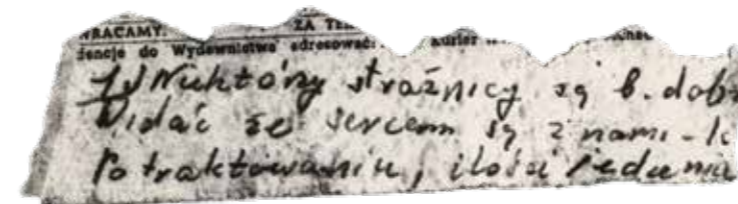 WRACAMY. ZA
dencje do Wydawnictwa adresować: kurier
Niektórzy strażnicy są b. dob
Widać że sercem są z nami -
Po traktowaniu, ilości jedzenia